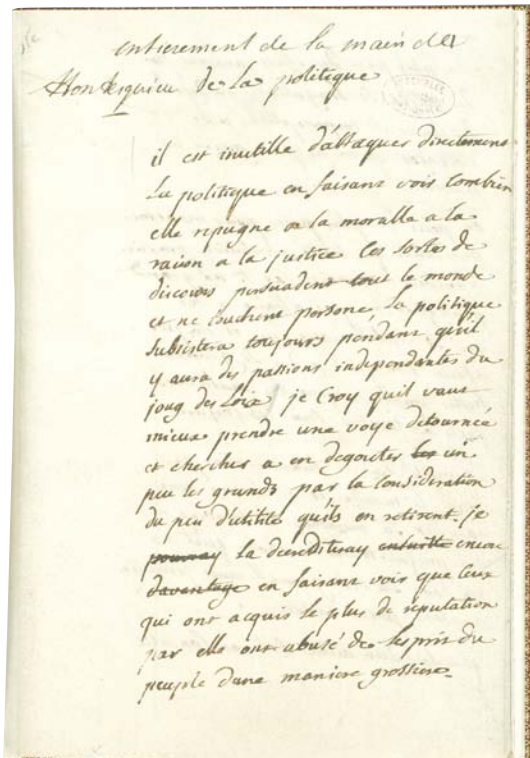 entierement de la main de
Montesquieu De La politique
il est inutille d'attaquer directement
La politique en faisant voir combien
elle repugne a la moralle a la
raison a la justice Ces sortes de
discours persuadent tout le monde
et ne touchent persone, La politique
subsistera toujours pendant qu'il
y aura des passions independantes du
joug des Loix je Croy quil vaut
mieux prendre une voye detournée
et chercher a en degouter les un
peu les grands par la Consideration
du peu d'utilité qu'ils en retirent. je
pourray la decrediteray ensuitte encore
davantage en faisant voir que Ceux
qui ont acquis le plus de reputation
par elle ont abusé de lesprit du
peuple dune maniere grossiere.